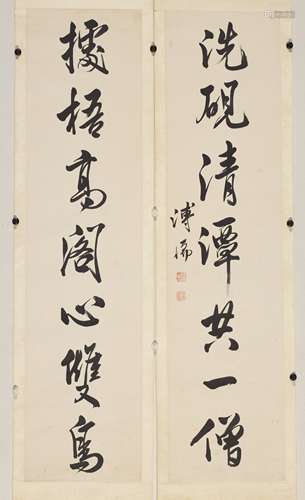 洗硯清潭共一僧
溥儒
據梧高閣心雙鳥